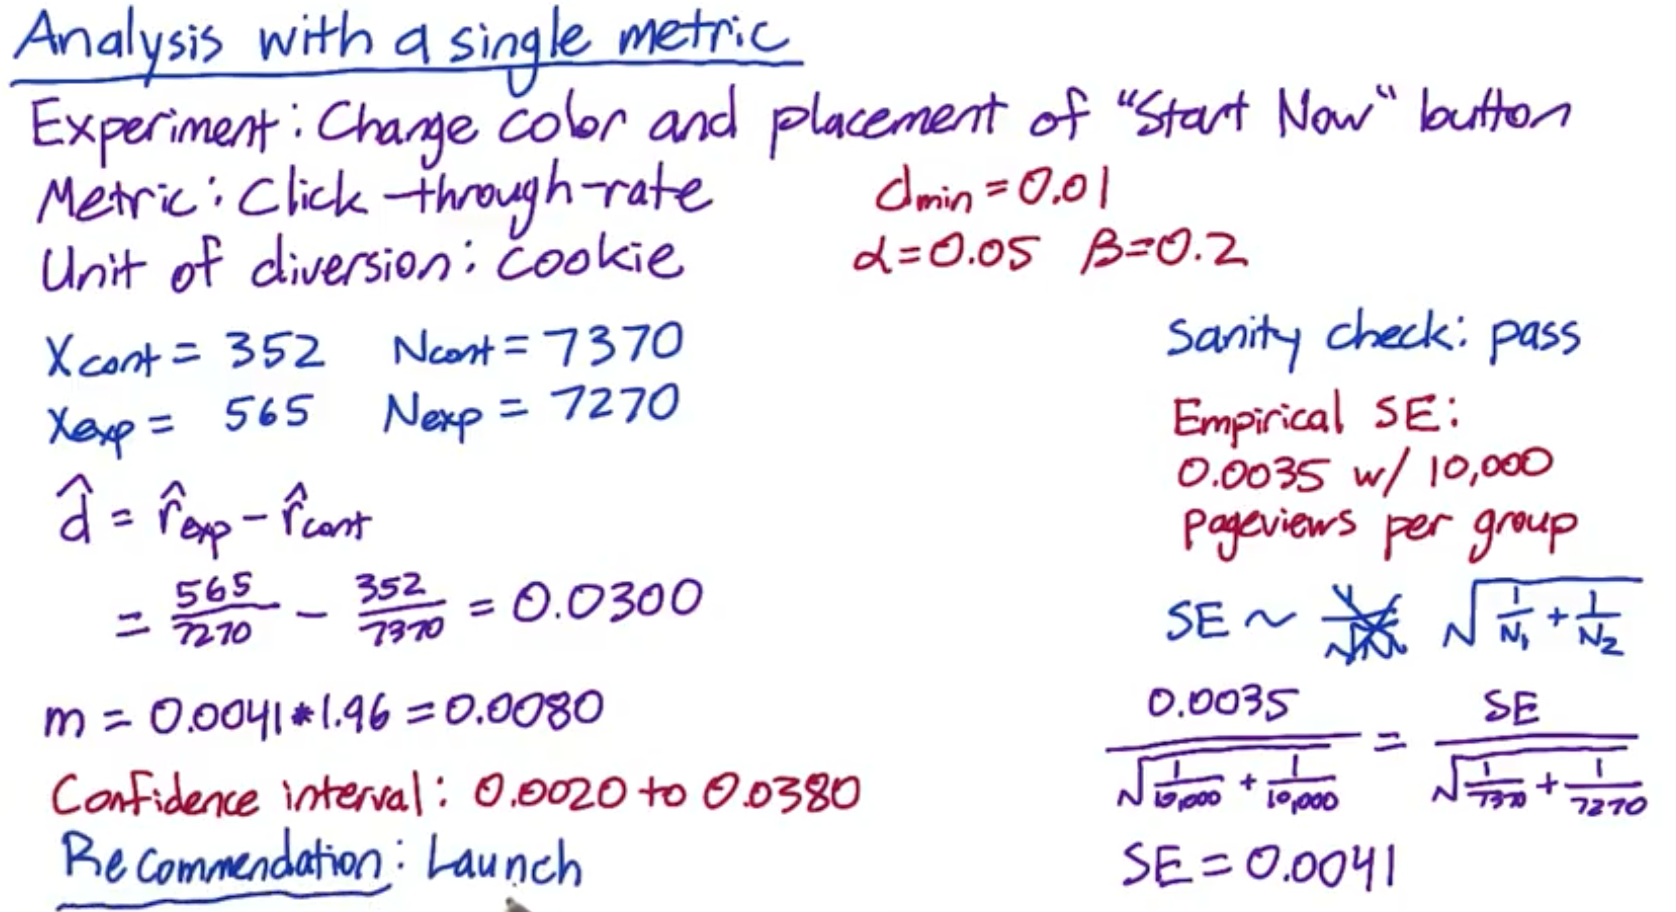 Analysis with a single metric
Experiment: Change color and placement of "Start Now" button
Metric: Click-through-rate
dmin = 0.01
Unit of diversion: cookie
α=0.05 β=0.2
Xcont = 352 Ncont = 7370
Xexp = 565 Nexp = 7270
d̂ = r̂exp - r̂cont
= 565/7270 - 352/7370 = 0.0300
m = 0.0041*1.96 = 0.0080
Confidence interval: 0.0020 to 0.0380
Recommendation: Launch
Sanity check: pass
Empirical SE:
0.0035 w/ 10,000
pageviews per group
SE ~ √(1/N₁ + 1/N₂)
0.0035/√(1/10,000 + 1/10,000) = SE/√(1/7370 + 1/7270)
SE = 0.0041